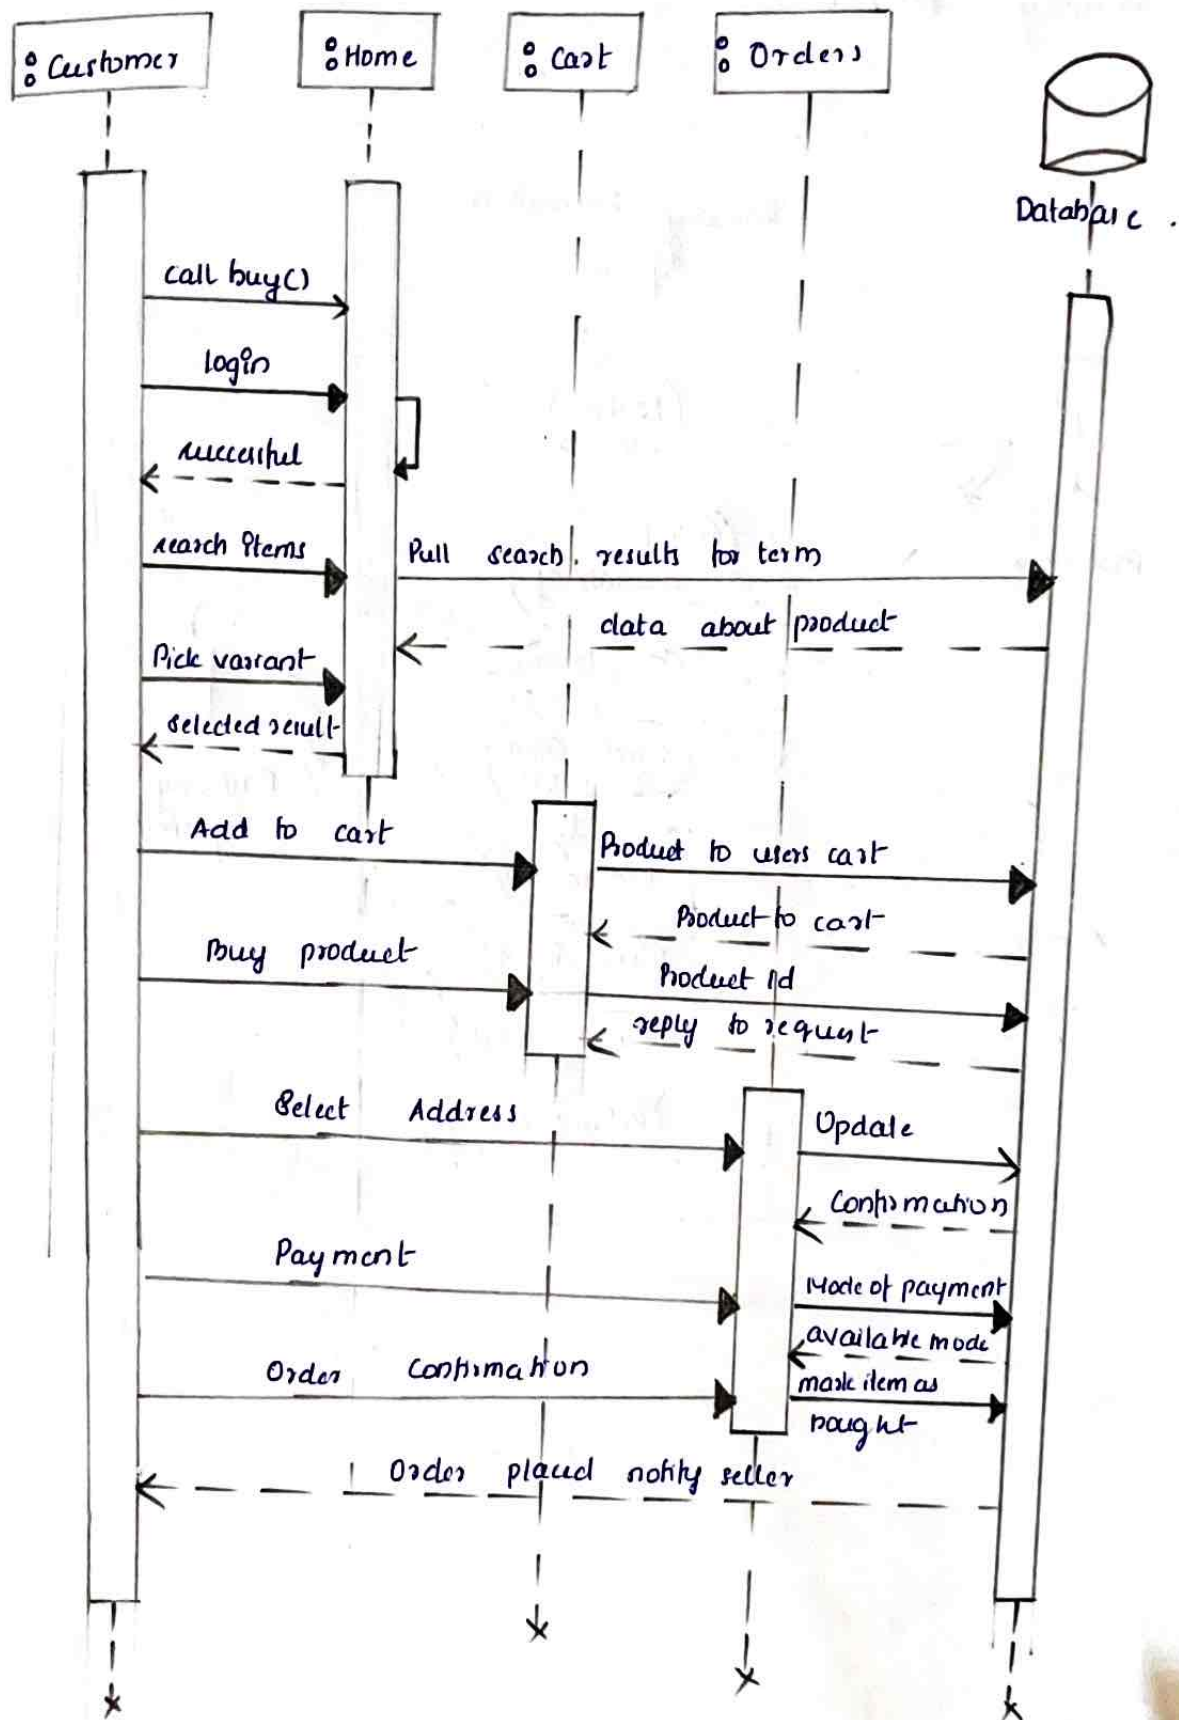 : Customer
: Home
: Cart
: Orders
Database .
call buy()
login
successful
search items
Pull search results for term
data about product
Pick variant
selected result
Add to cart
Product to users cart
Product to cart
Buy product
Product Id
reply to request
Select Address
Update
Confirmation
Payment
Mode of payment
available mode
Order Confirmation
mark item as
bought
Order placed notify seller